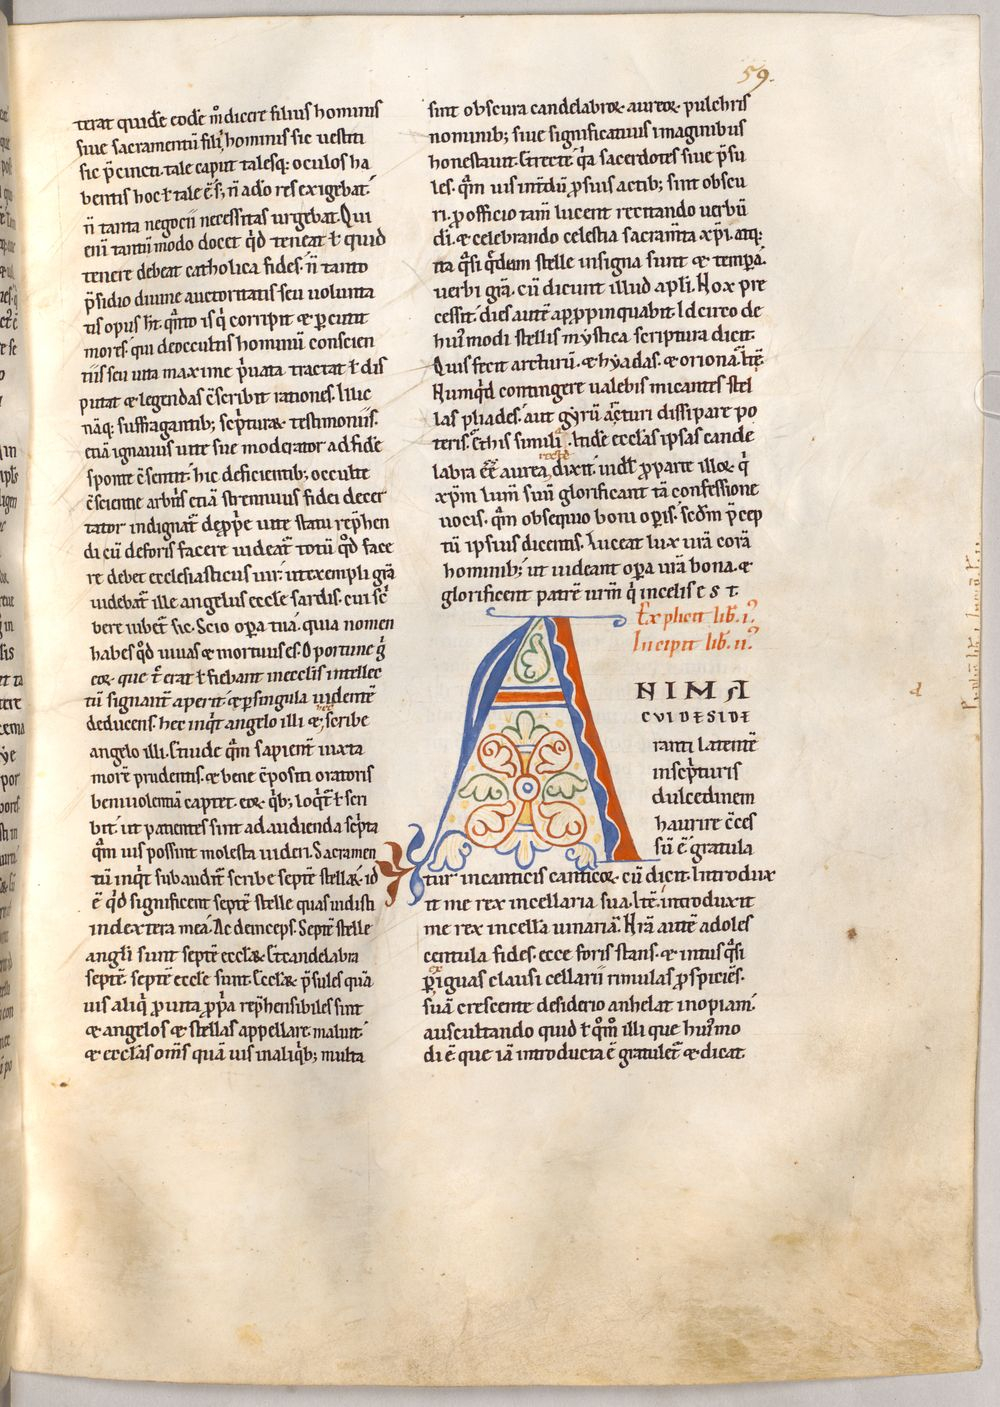 59.
terat quidē eodē m̊ dicere filius hominis
siue sacramentū filii hominis sic uestiti
sic p̄cincti. tale caput talesq; oculos ha
bentis hoc ł tale ē s; n̄ adeo res exigebat.
n̄ tanta negocii necessitas urgebat. Qui
eni tantūmodo docet qd̄ teneat ł quid
tenere debeat catholica fides. n̄ tanto
p̄sidio diuine auctoritatis seu uolunta
tis opus h̄t. qn̄to is q̇ corripit & ꝑcutit
mores. qui de occultis hominū conscien
tiis seu uita maxime ṗuata tractat ł dis
putat & legendas c̄scribit rationes. Illic
nāq; suffragantib; sċpturaꝝ testimoniis.
etiā ignauus uite sue moderator ad fidē
sponte c̄sentit. hic deficientib; occulte
c̄scientie arbit̄s etiā strennuus fidei decer
tator indignat̄ de ꝓp̄e uite statu rep̄hen
di cū deforis facere uideat̄ totū qd̊ face
re debet ecclesiasticus uir. ut exempli grā
uidebat̄ ille angelus eccle sardis. cui sċ
bere iubet̄ sic. Scio oꝑa tua. quia nomen
habes qd̊ uiuas & mortuus es. Oportune g̊
eoꝝ que t̄ erāt ł fiebant in ecclīs intellec
tū signant̄ aperit. & ꝑ singula uidentē
deducens. hec inqt̄ angelo illi &; scribe
angelo illi. Et iude qm̄ sapient̄ iuxta
morē prudentis. & bene c̄positi oratoris
beniuolentiā captet. eoꝝ q̇b; loqt̄ ł scri
bit. ut patientes sint ad audienda sċpta
qm̄ uis possint molesta uideri. Sacramen
tū inqt̄ subaudit̄ scribe septē stellaꝝ. id
ē qd̊ significent septē stelle quas uidisti
in dextera mea. Ac deinceps. Septē stelle
angli sunt septē ecclaꝝ. Et candelabra
septē. septē eccle sunt. Ecclaꝝ p̄sules quā
uis aliq̇ ꝓ uita ꝓṗa rep̄hensibiles sint
& angelos & stellas appellare maluit.
& ecclas om̄s quā uis in aliq̇b; multa
sint obscura candelabroꝝ aureoꝝ pulchris
nominib; siue significatiuis imaginibus
honestauit. Et recte. q̇a sacerdotes siue p̄su
les. qm̄ uis int̄dū ꝓsius actib; sint obscu
ri. ꝓ officio tam̄ lucent recitando uerbū
dī. & celebrando celestia sacram̄ta xp̄i. atq;
ita qsi qdam stelle insigna sunt & tempa.
uerbi grā. cū dicunt illud apli. Nox pre
cessit. dies autē apꝓpinquabit. Idcirco de
hui9modi stellis mystica scriptura dicit.
Quis fecit arcturū. & hyadas. & oriona. Itē.
Numqd̊ coniungere ualebis micantes stel
las pliades. aut gyrū arcturi dissipare po
teris. Et his simili. Itidē ecclas ipsas cande
labra ēē aurea, recte dixit. uidl̄ ꝓ parte illoꝝ. q̇
xp̄m lum̄ suū glorificant tā confessione
uocis. qm̄ obsequio boni oꝑis. scdm p̄cep
tū ipsius dicentis. Luceat lux ur̄a corā
hominib; ut uideant oꝑa ur̄a bona. &
glorificent patrē ur̄m q̇ in celis e s t.
Explicit lib̄. i9.
Incipit lib̄. ii9.
ANIMA
CVI DESIDE
ranti latentē
in sċpturis
dulcedinem
haurire c̄ces
sū ē gratula
tur in canticis canticoꝝ. cū dicit. Introdux
it me rex in cellaria sua. Itē. introduxit
me rex in cella uinariā. Nr̄a autē adoles
centula fides. ecce foris stans. & intus qsi
ꝑ exiguas clausi cellarii rimulas ꝓspiciēs.
suā crescente desiderio anhelat inopiam.
auscultando quid ł qm̊ illi que hui9mo
di ē que iā introducta ē gratulet̄ & dicat.